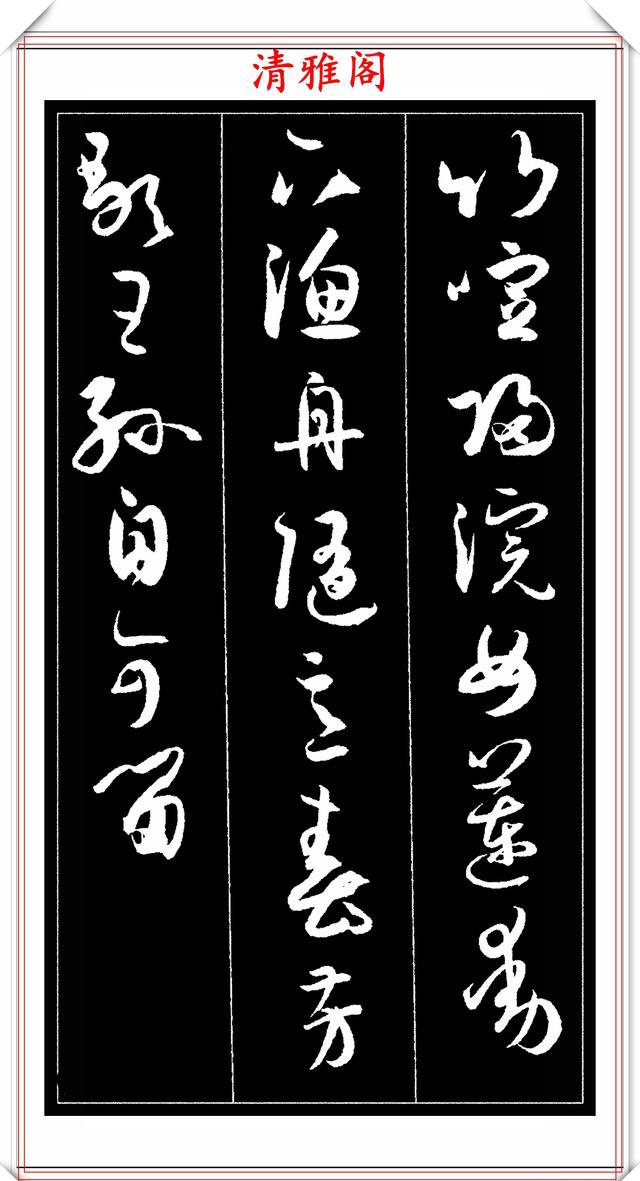 清雅阁
竹喧归浣女莲动
下渔舟随意春芳
歇王孙自可留